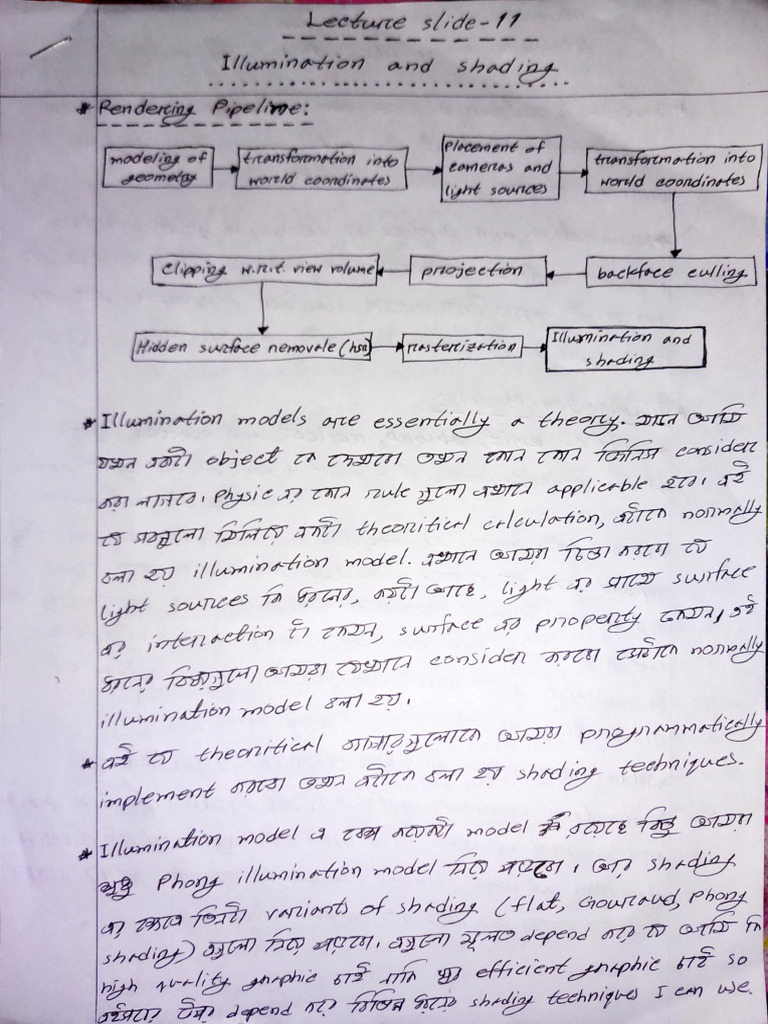 Lecture slide-11
Illumination and shading
* Rendering Pipeline:
modeling of geometry
transformation into world coordinates
placement of cameras and light sources
transformation into world coordinates
backface culling
projection
clipping w.r.t. view volume
Hidden surface removale (hsr)
rasterization
Illumination and shading
* Illumination models are essentially a theory. মানে আমি
যখন একটা object কে দেখবো তখন কোন কোন জিনিস consider
করা লাগবে। Physic এর কোন rule গুলো এখানে applicable হবে। এই
যে সবগুলো মিলিয়ে একটা theoritical calculation, এটাকে normally
বলা হয় illumination model. এখানে আমরা চিন্তা করবো যে
light sources কি ধরনের, কয়টা আছে, light এর সাথে surface
এর interaction টা কেমন, surface এর property কেমন, এই
ধরনের বিষয়গুলো আমরা যেখানে consider করবো সেটাকে normally
illumination model বলা হয়।
* এই যে theoritical ব্যাপারগুলোকে আমরা programmatically
implement করবো তখন এটাকে বলা হয় shading techniques.
* Illumination model এ বেশ কয়েকটা model রয়েছে কিন্তু আমরা
শুধু Phong illumination model নিয়ে পড়বো। আর shading
এর ক্ষেত্রে তিনটা variants of shading (flat, Gouraud, Phong
shading) এগুলো নিয়ে পড়বো। এগুলো মূলত depend করে যে আমি কি
high quality graphic চাই নাকি খুব efficient graphic চাই so
উপর depend করে বিভিন্ন ধরনের shading techniques I can use.